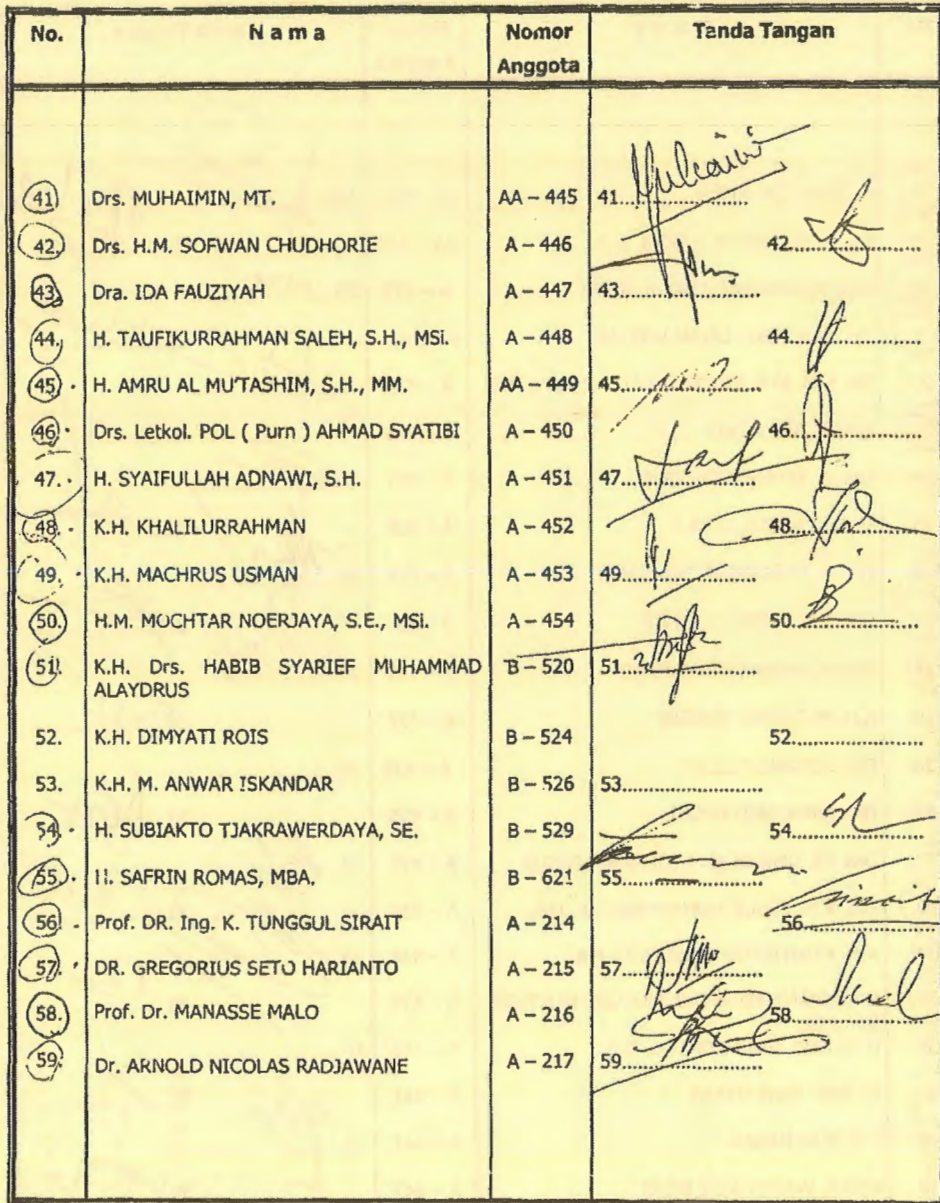 No. N a m a Nomor Anggota Tanda Tangan
41 Drs. MUHAIMIN, MT. AA – 445 41
42. Drs. H.M. SOFWAN CHUDHORIE A – 446 42
43. Dra. IDA FAUZIYAH A – 447 43
44. H. TAUFIKURRAHMAN SALEH, S.H., MSi. A – 448 44
45. H. AMRU AL MU'TASHIM, S.H., MM. AA – 449 45
46. Drs. Letkol. POL ( Purn ) AHMAD SYATIBI A – 450 46
47. H. SYAIFULLAH ADNAWI, S.H. A – 451 47
48. K.H. KHALILURRAHMAN A – 452 48
49. K.H. MACHRUS USMAN A – 453 49
50. H.M. MOCHTAR NOERJAYA, S.E., MSi. A – 454 50
51. K.H. Drs. HABIB SYARIEF MUHAMMAD B – 520 51
ALAYDRUS
52. K.H. DIMYATI ROIS B – 524 52
53. K.H. M. ANWAR ISKANDAR B – 526 53
54. H. SUBIAKTO TJAKRAWERDAYA, SE. B – 529 54
55. H. SAFRIN ROMAS, MBA. B – 621 55
56. Prof. DR. Ing. K. TUNGGUL SIRAIT A – 214 56
57. DR. GREGORIUS SETO HARIANTO A – 215 57
58. Prof. Dr. MANASSE MALO A – 216 58
59. Dr. ARNOLD NICOLAS RADJAWANE A – 217 59